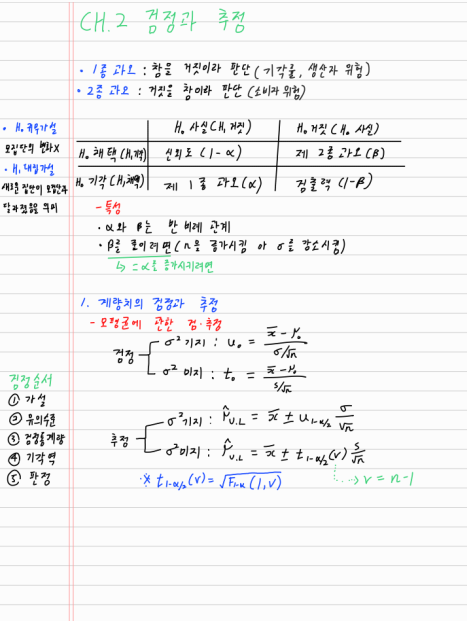 CH.2 검정과 추정
• 1종 과오 : 참을 거짓이라 판단 (기각률, 생산자 위험)
• 2종 과오 : 거짓을 참이라 판단 (소비자 위험)
• H₀ 귀무가설
모집단의 변화X
• H₁ 대립가설
새로운 집단이 모집단과
달라졌음을 의미
H₀ 사실 (H₁ 거짓) H₀ 거짓 (H₀ 사실)
H₀ 채택 (H₁기각) 신뢰도 (1-α) 제 2종 과오 (β)
H₀ 기각 (H₁채택) 제 1종 과오(α) 검출력 (1-β)
- 특성
• α와 β는 반비례 관계
• β를 줄이려면 (n을 증가시킴 or σ를 감소시킴)
↳ = α를 증가시키려면
1. 계량치의 검정과 추정
- 모평균에 관한 검·추정
검정
σ² 기지 : u₀ = (x̄ - μ₀) / (σ/√n)
σ² 미지 : t₀ = (x̄ - μ₀) / (s/√n)
검정순서
① 가설
② 유의수준
③ 검정통계량
④ 기각역
⑤ 판정
추정
σ²기지 : μ̂ᵤ.ʟ = x̄ ± u₁₋α/₂ σ/√n
σ²미지 : μ̂ᵤ.ʟ = x̄ ± t₁₋α/₂(ν) s/√n
※ t₁₋α/₂(ν) = √F₁₋α(1,ν)
→ ν = n-1